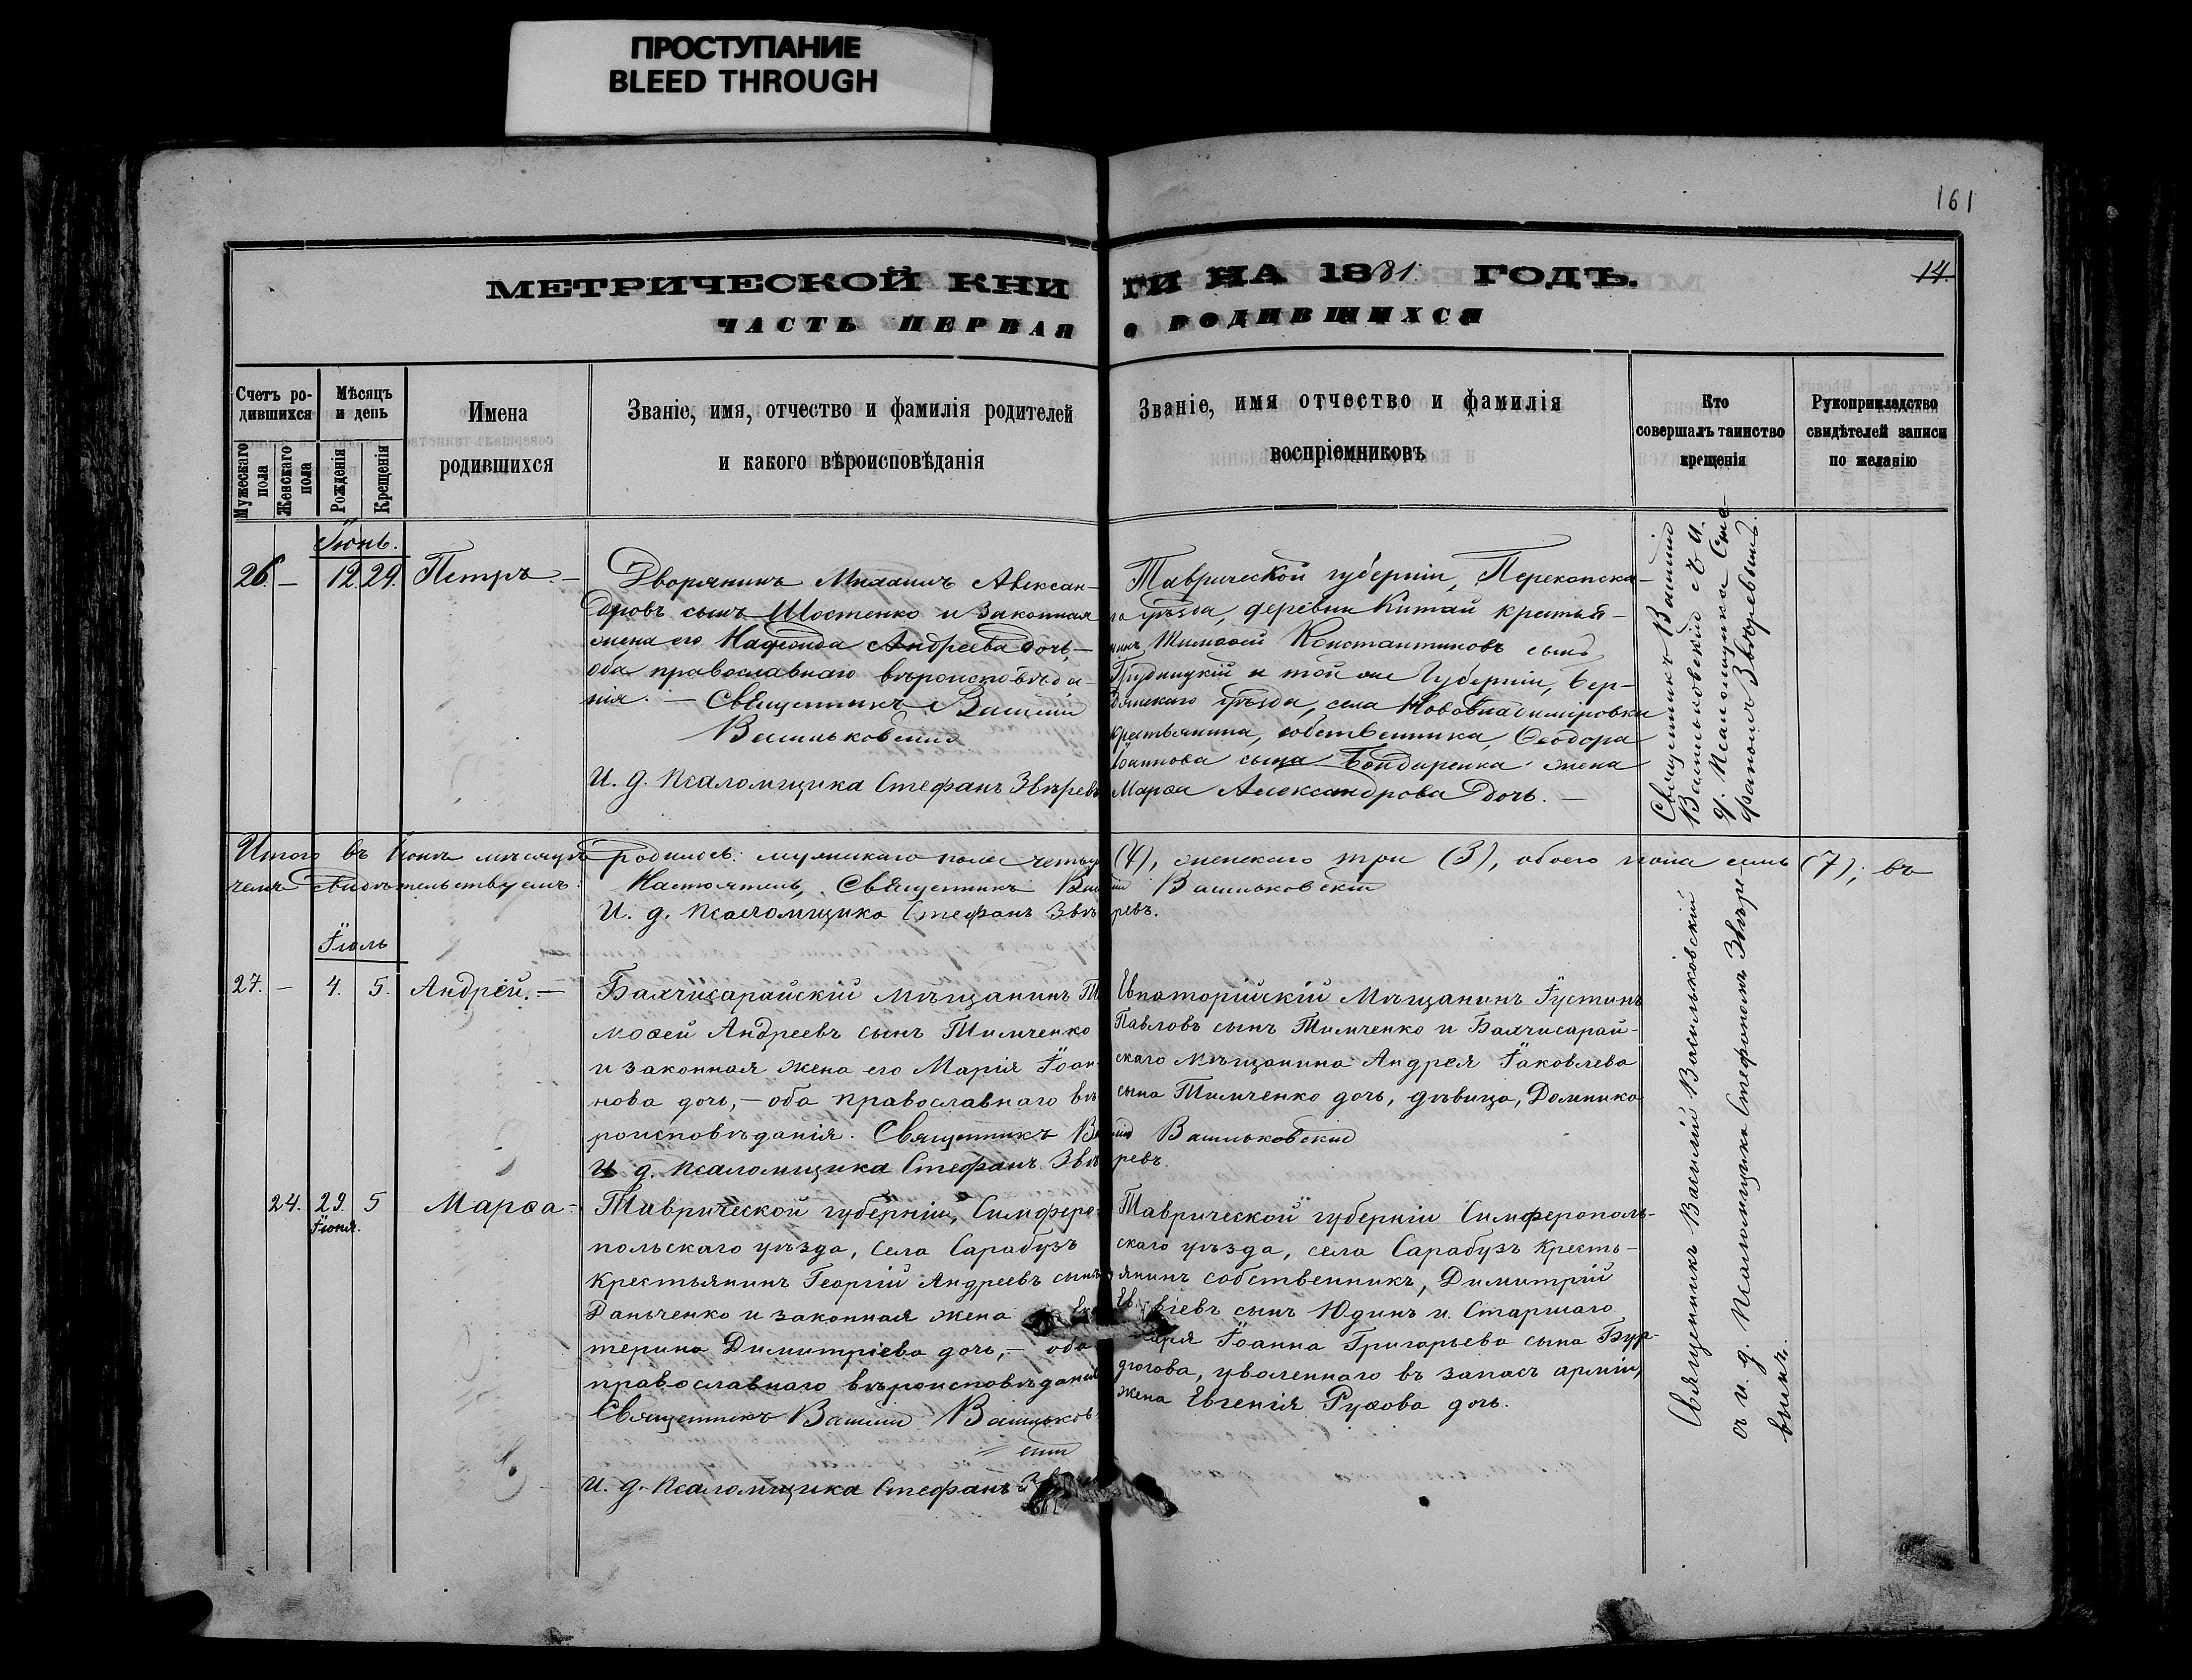 ПРОСТУПАНИЕ
BLEED THROUGH
161
МЕТРИЧЕСКОЙ КНИГИ НА 1881 ГОДЪ.
14.
ЧАСТЬ ПЕРВАЯ О РОДИВШИХСЯ
Счетъ ро-
дившихся
Мужескаго пола
Женскаго пола
Мѣсяцъ
и день
Рожденія
Крещенія
Имена
родившихся
Званіе, имя, отчество и фамилія родителей
и какого вѣроисповѣданія
Званіе, имя отчество и фамилія
воспріемниковъ
Кто
совершалъ таинство
крещенія
Рукоприкладство
свидѣтелей записи
по желанію
Іюнь.
26. – 12. 29. Петръ. –
Дворянинъ Михаилъ Алексан-
дровъ сынъ Шостенко и законная
жена его Надежда Андреева дочь, –
оба православнаго вѣроисповѣда-
нія. – Священникъ Василій
Васильковскій
И. д. псаломщика Стефанъ Звѣревъ
Таврической губерніи, Перекопска-
го уѣзда, деревни Китай крестья-
нинъ Тимоѳей Константиновъ сынъ
Грудницкій и той же Губерніи, Бер-
дянскаго уѣзда, села Нововладиміровки
крестьянина, собственника, Ѳеодора
Іоаннова сына Бондаренка жена
Марѳа Александрова дочь. –
Священникъ Василій
Васильковскій съ и.
д. псаломщика Сте-
фаномъ Звѣревымъ.
Итого въ Іюнѣ мѣсяцѣ родилось: мужескаго пола четыре (4), женскаго три (3), обоего пола семь (7); въ
чемъ свидѣтельствуемъ: Настоятель, Священникъ Василій Васильковскій
И. д. псаломщика Стефанъ Звѣревъ.
Іюль
27. – 4. 5. Андрей. –
Бахчисарайскій мѣщанинъ Ти-
моѳей Андреевъ сынъ Тимченко
и законная жена его Марія Іоан-
нова дочь, – оба православнаго вѣ-
роисповѣданія. Священникъ Василій Васильковскій
И. д. псаломщика Стефанъ Звѣревъ.
Евпаторійскій мѣщанинъ Іустинъ
Павловъ сынъ Тимченко и Бахчисарай-
скаго мѣщанина Андрея Іаковлева
сына Тимченко дочь, дѣвица, Домника
24. 29. Іюня. 5 Марѳа –
Таврической губерніи, Симферо-
польскаго уѣзда, села Сарабузъ
крестьянинъ Георгій Андреевъ сынъ
Данченко и законная жена Ека
терина Димитріева дочь, – оба
православнаго вѣроисповѣданія
Священникъ Василій Васильков-
скій
И. д. псаломщика Стефанъ
Таврической губерніи Симферополь-
скаго уѣзда, села Сарабузъ кресть-
янинъ собственникъ, Димитрій
сынъ Юдинъ и. Старшаго
Іоанна Григорьева сына Бур-
дюгова, уволеннаго въ запасъ арміи,
жена Евгенія дочь.
Священникъ Василій Васильковскій
съ и. д. псаломщика Стефаномъ Звѣре-
вымъ.